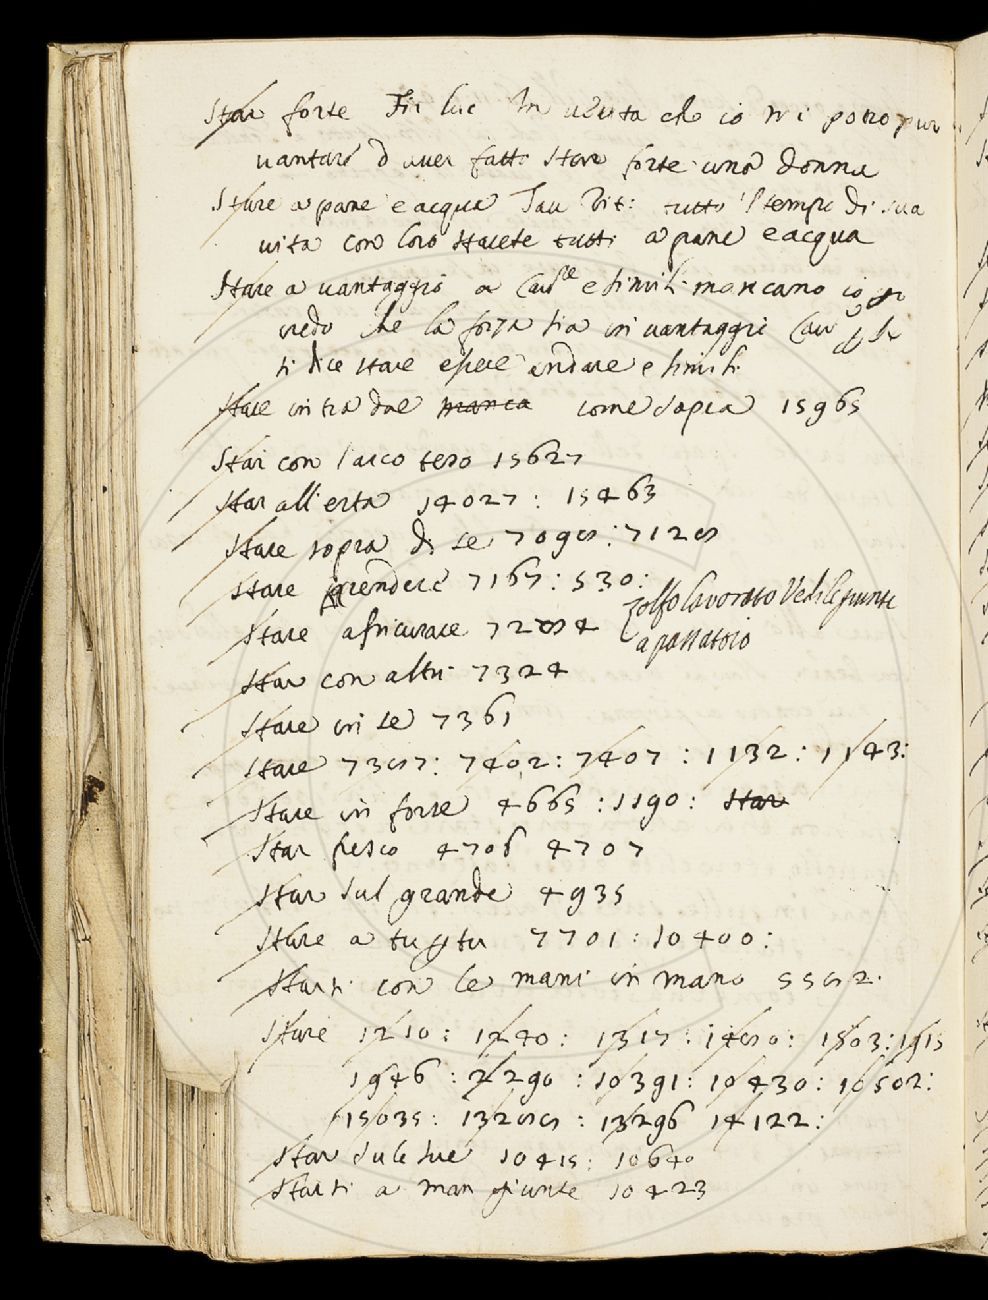 Star forte Fir luc In uerita che io mi posso pur
uantare d auer fatto stare forte una donna
Stare a pane e acqua Sau Vit: tutto 'l tempo di sua
uita con loro starete tutti a pane e acqua
Stare a uantaggio a e simili mancano io
credo che la forza sia in uantaggio
si dice stare essere andare e simili
Stare in tra due manca come sopra 15965
Star con l'arco teso 15627
Star all'erta 14027: 15463
Stare sopra di se 7098: 7128
Stare prendere 7167: 530:
Zolfo lavorato Vedi le giunte
Stare assicurare 7284
a passatoio
Star con altri 7324
Stare in se 7361
Stare 7387: 7402: 7407: 1132: 1143:
Stare in forse 4665: 1190: Star
Star fresco 4706 4707
Star sul grande 4935
Stare a tu per tu 7701: 10400:
Starsi con le mani in mano 5582.
Stare 1210: 1240: 1317: 1480: 1503: 1915
1946: 2290: 10391: 10430: 10502:
15035: 13288: 13296 14122:
Star sule sue 10415: 10640
Starsi a man giunte 10423